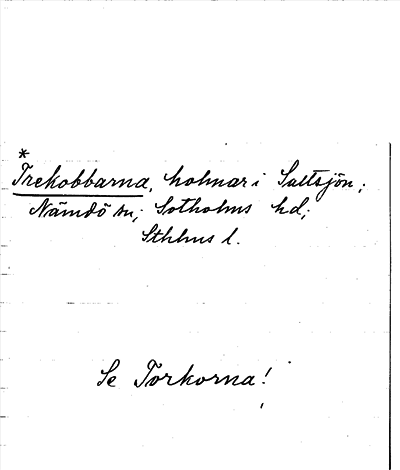 *
Trekobbarna, holmar i Saltsjön;
Nämdö sn; Sotholms hd;
Sthlms l.
Se Torkorna!